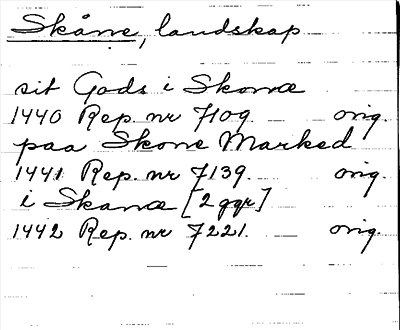 Skåne, landskap
sit Gods i Skonæ
1440 Rep. nr 7109. orig.
paa Skone Marked
1441 Rep. nr 7139. orig.
i Skanæ [2 ggr]
1442 Rep. nr 7221. orig.